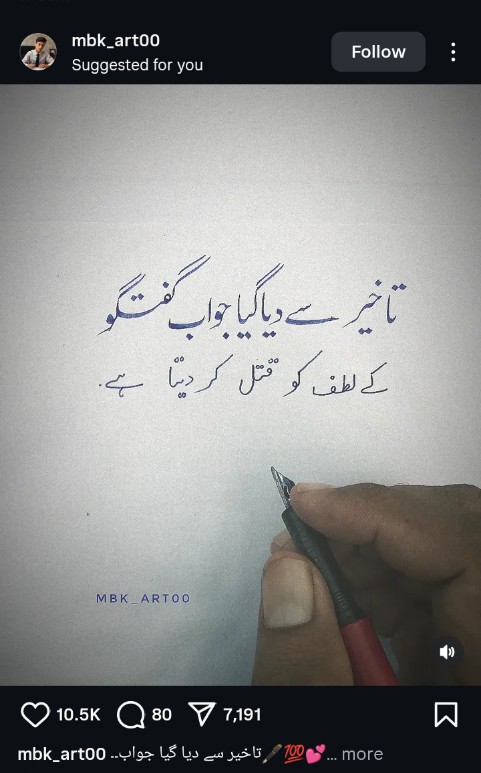 mbk_art00
Suggested for you
Follow
تاخیر سے دیا گیا جواب گفتگو
کے لطف کو قتل کر دیتا ہے۔
MBK_ART00
10.5K
80
7,191
mbk_art00 تاخیر سے دیا گیا جواب..🖋️💯💕... more